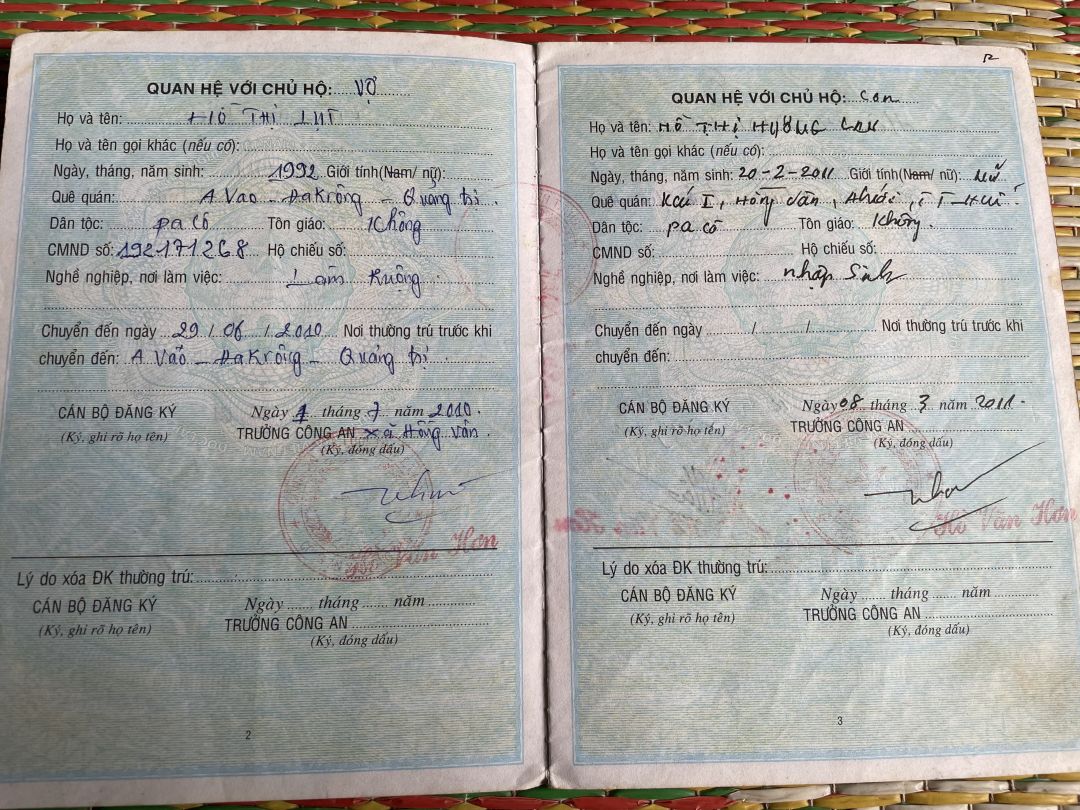 QUAN HỆ VỚI CHỦ HỘ: Vợ
Họ và tên: HỒ THỊ LỰT
Họ và tên gọi khác (nếu có):
Ngày, tháng, năm sinh: 1992 Giới tính(Nam/ nữ):
Quê quán: A Vao - ĐaKrông - Quảng Trị
Dân tộc: pa cô Tôn giáo: Không
CMND số: 192171268 Hộ chiếu số:
Nghề nghiệp, nơi làm việc: Làm Ruộng
Chuyển đến ngày 29 / 06 / 2010 Nơi thường trú trước khi
chuyển đến: A Vao - ĐaKrông - Quảng Trị
CÁN BỘ ĐĂNG KÝ Ngày 1 tháng 7 năm 2010.
(Ký, ghi rõ họ tên) TRƯỞNG CÔNG AN xã Hồng Vân
(Ký, đóng dấu)
Hồ Văn Hơn
Lý do xóa ĐK thường trú:
CÁN BỘ ĐĂNG KÝ Ngày tháng năm
(Ký, ghi rõ họ tên) TRƯỞNG CÔNG AN
(Ký, đóng dấu)
2
QUAN HỆ VỚI CHỦ HỘ: Con
Họ và tên: HỒ THỊ
Họ và tên gọi khác (nếu có):
Ngày, tháng, năm sinh: 20-2-2011 Giới tính(Nam/ nữ): Nữ
Quê quán: I, Hồng Vân,
Dân tộc: pa cô Tôn giáo: Không.
CMND số: Hộ chiếu số:
Nghề nghiệp, nơi làm việc: nhập Sinh
Chuyển đến ngày / / Nơi thường trú trước khi
chuyển đến:
CÁN BỘ ĐĂNG KÝ Ngày 08 tháng 3 năm 2011.
(Ký, ghi rõ họ tên) TRƯỞNG CÔNG AN
(Ký, đóng dấu)
Hồ Văn Hơn
Lý do xóa ĐK thường trú:
CÁN BỘ ĐĂNG KÝ Ngày tháng năm
(Ký, ghi rõ họ tên) TRƯỞNG CÔNG AN
(Ký, đóng dấu)
3